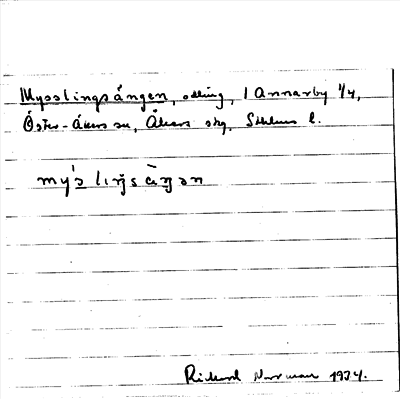 Mysslingsängen, odling, 1 Annarby 1/4,
Öster-Åkers sn, Åkers skg, Sthlms l.
my̆'s lıŋs ὰŋən
Richard Norrman 1934.